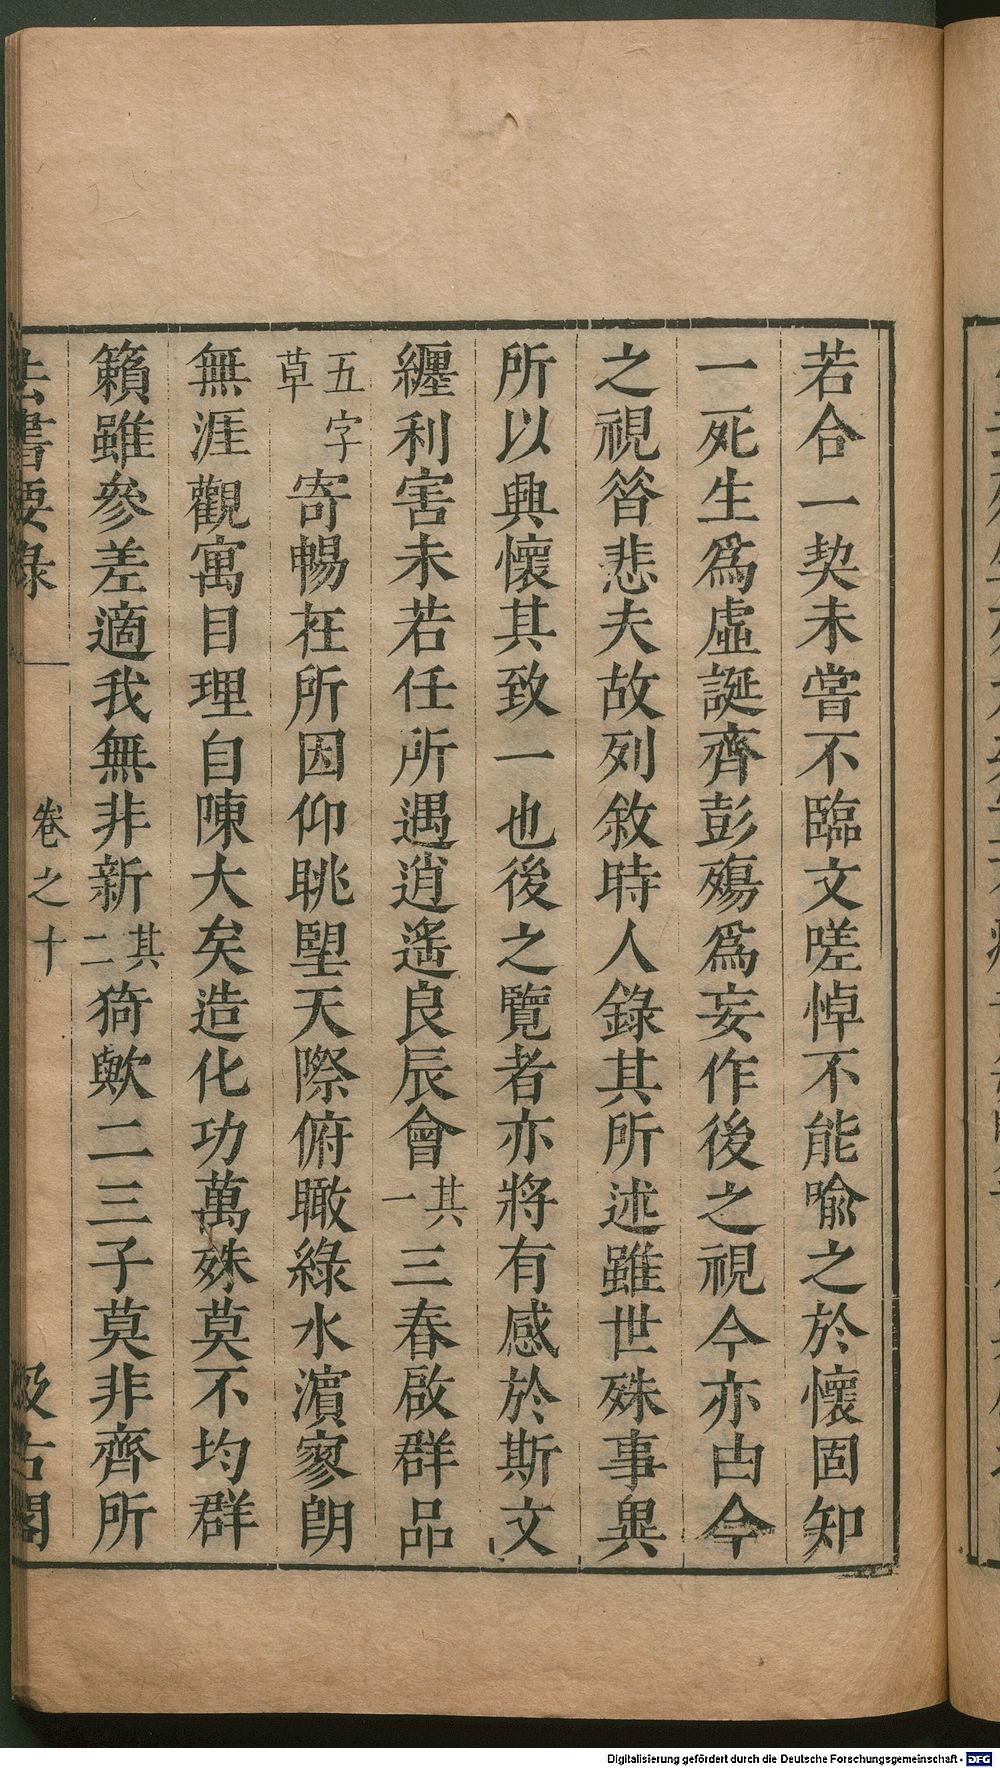 若合一契未嘗不臨文嗟悼不能喻之於懷固知
一死生爲虛誕齊彭殤爲妄作後之視今亦由今
之視昝悲夫故列敘時人錄其所述雖世殊事異
所以興懷其致一也後之覽者亦將有感於斯文
纏利害未若任所遇逍遙良辰會其一三春啟群品
五字草寄暢在所因仰眺望天際俯瞰綠水濵寥朗
無涯觀寓目理自陳大矣造化功萬殊莫不均群
籟雖參差適我無非新其二猗歟二三子莫非齊所
法書要錄 卷之十 汲古閣
Digitalisierung gefördert durch die Deutsche Forschungsgemeinschaft - DFG